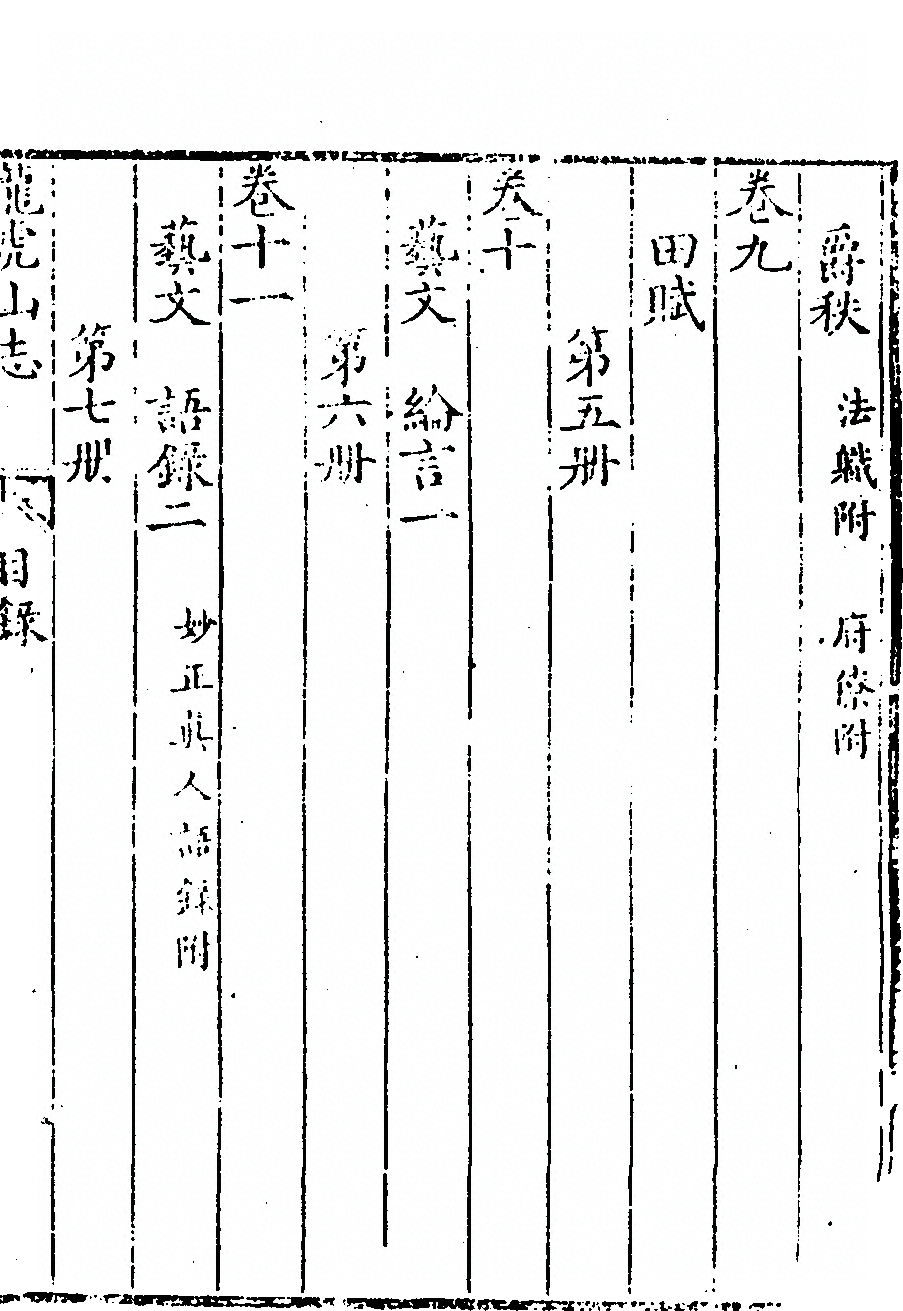 爵秩　法職附　府僚附
卷九
田賦
第五册
卷十
藝文　綸言一
第六册
卷十一
藝文　語錄二　妙正真人語錄附
第七册
龍虎山志　目錄